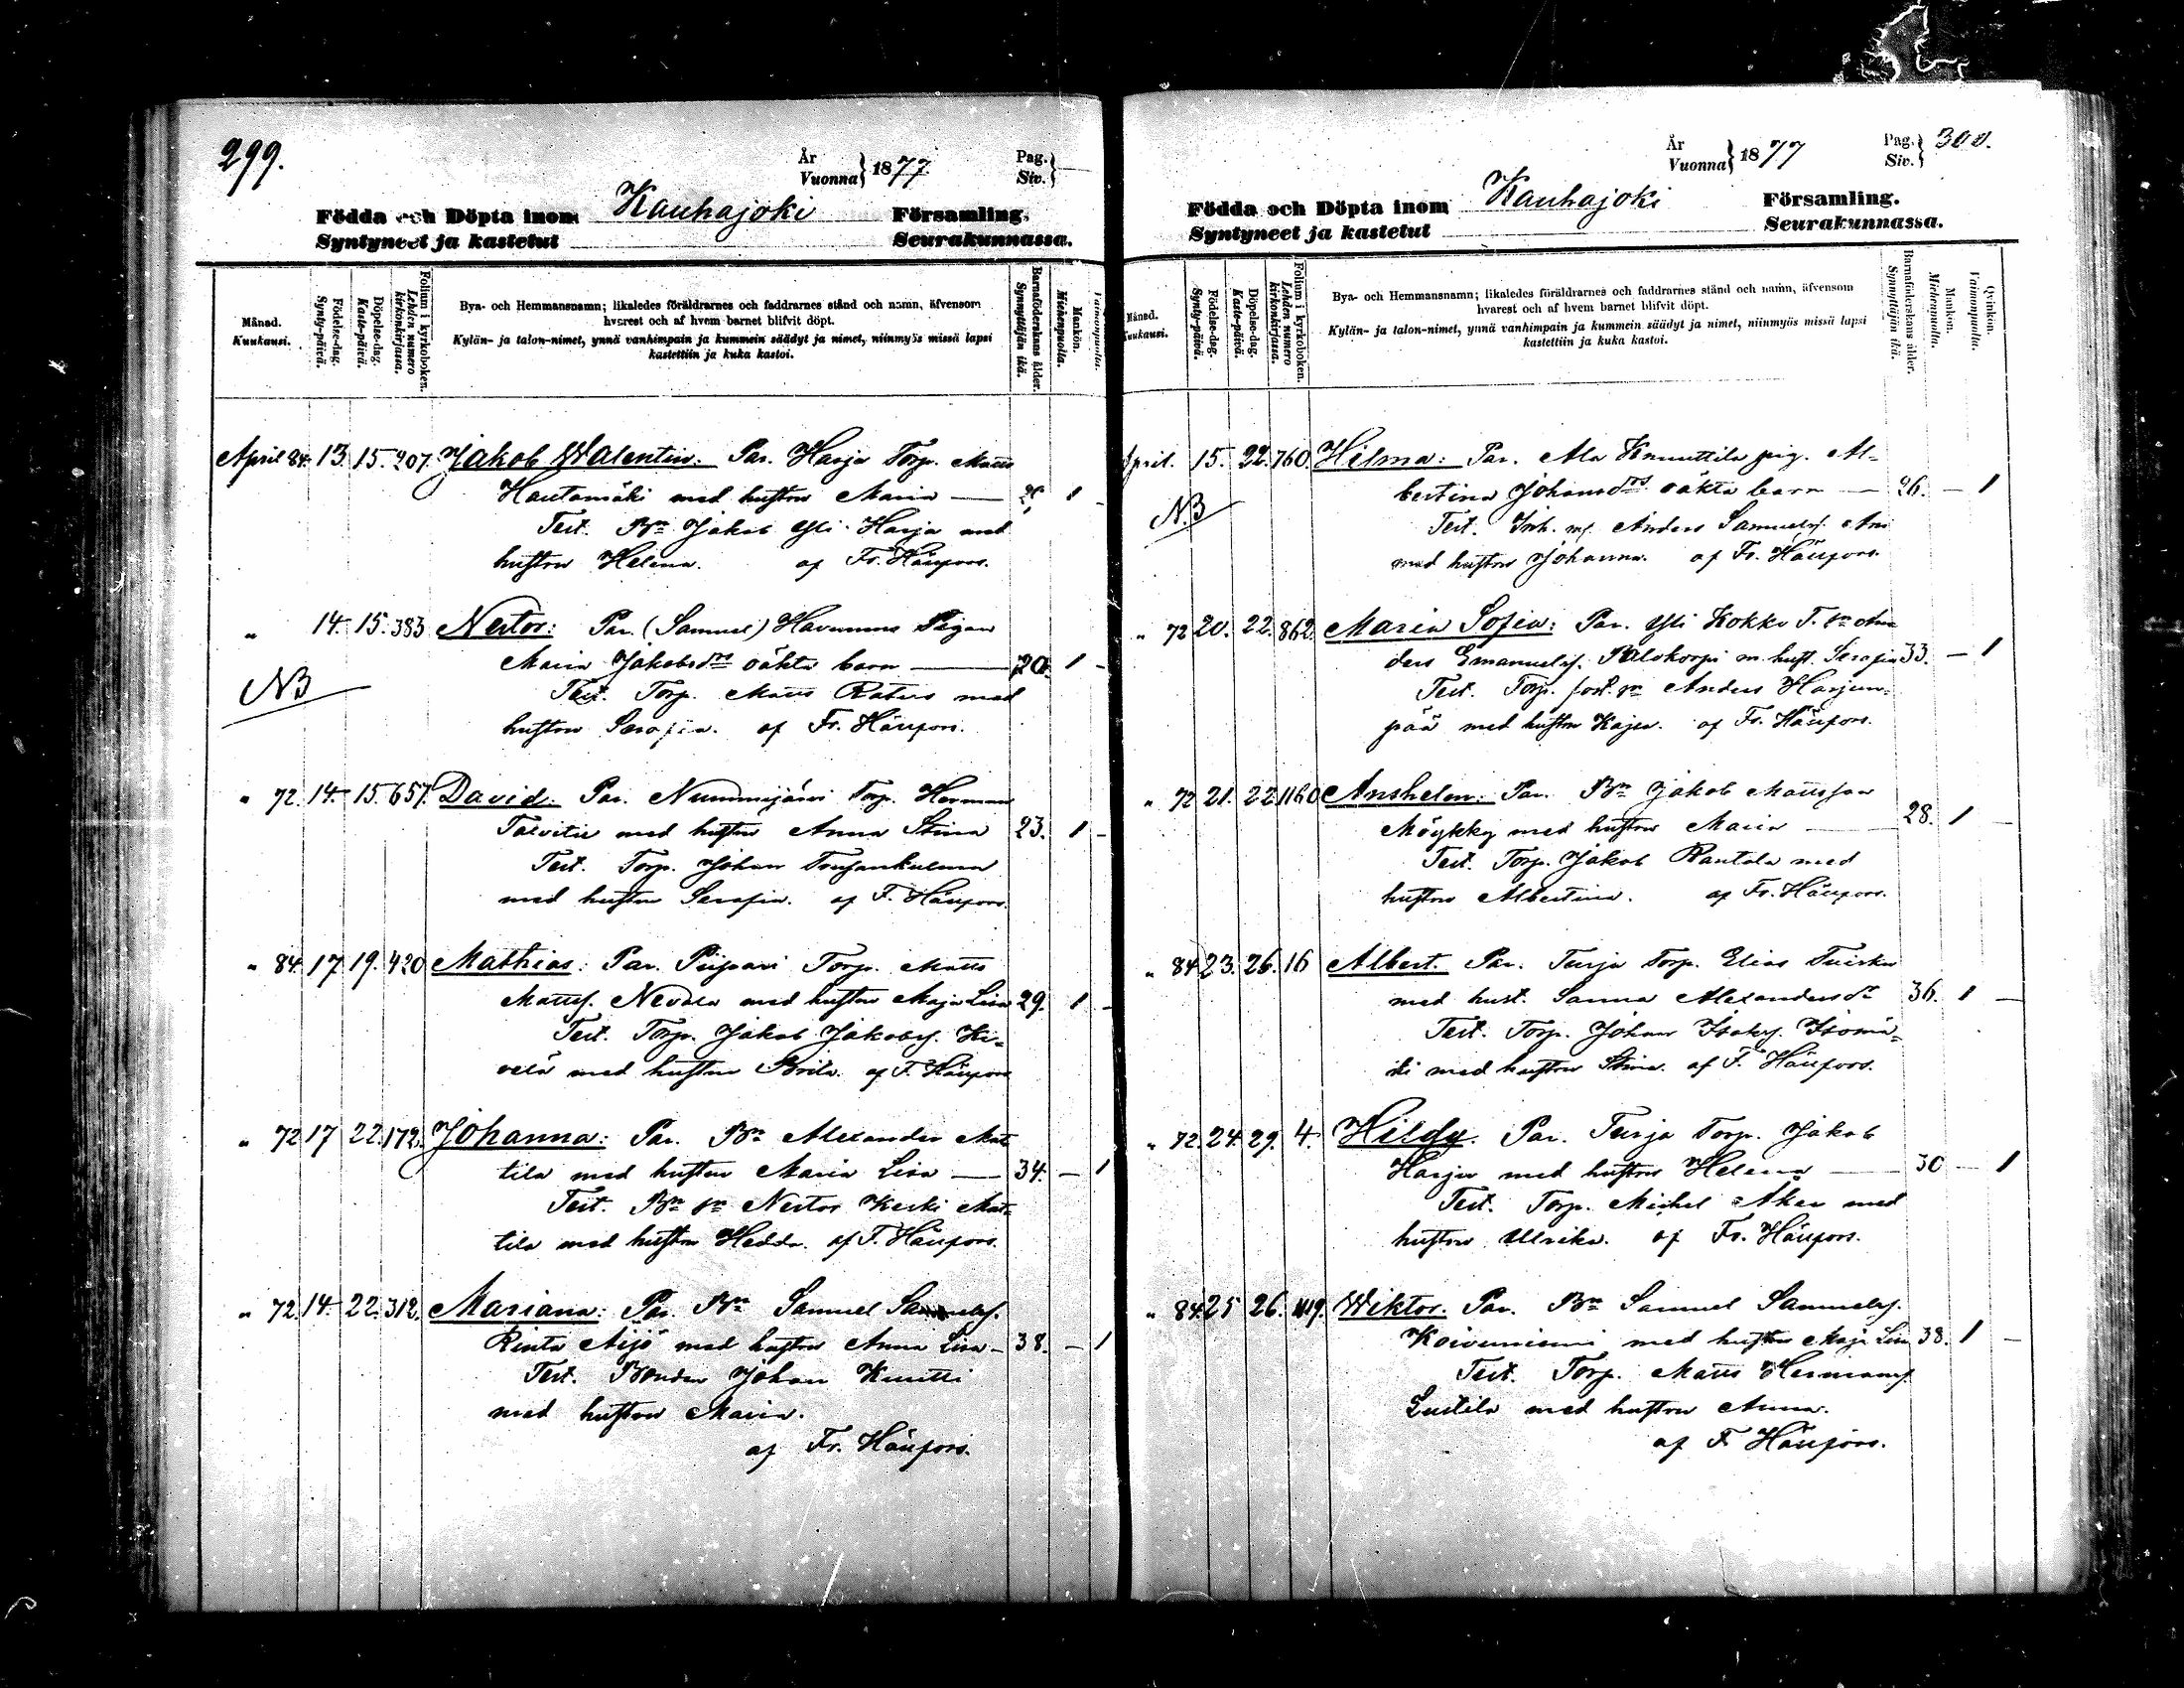 299.
År
Vuonna } 1877.
Pag.
Siv. }
Födda och Döpta inom Kauhajoki Församling.
Syntyneet ja kastetut Seurakunnassa.
Månad.
Kuukausi.
Födelse-dag.
Synty-päivä.
Döpelse-dag.
Kaste-päivä.
Folium i kyrkoboken.
Lehden numero
kirkonkirjassa.
Bya- och Hemmansnamn; likaledes föräldrarnes och faddrarnes stånd och namn, äfvensom
hvarest och af hvem barnet blifvit döpt.
Kylän- ja talon-nimet, ynnä vanhimpain ja kummein säädyt ja nimet, niinmyös missä lapsi
kastettiin ja kuka kastoi.
Barnaföderskans ålder.
Synnyttäjän ikä.
Mankön.
Miehenpuolta.
Vaimonpuolta.
April 84. 13. 15. 207. Jakob Walentin: Par. Harja Torp. Matts
Hautamäki med hustru Maria — 1
Test. Bn Jakob Yli Harja med
hustru Helena. af Fr. Häufors.
" 14. 15. 383 Nestor: Par. (Samuel) Havunens Pigan
Maria Jakobsdrs oäkta barn — 20. 1 -
NB
Test. Torp. Matts Raters med
hustru Serafia. af Fr. Häufors.
" 72. 14. 15. 657. David. Par. Nummijärvi Torp. Herman
Talvitie med hustru Anna Stina 23. 1 -
Test. Torp. Johan
med hustru Serafia. af F. Häufors.
" 84. 17. 19. 420 Mathias: Par. Piipari Torp. Matts
Mattsf. Nevala med hustru Maja Lisa 29. 1 -
Test. Torp. Jakob Jakobsf. Ki-
velä med hustru Brita. af F. Häufors
" 72 17 22. 172. Johanna: Par. Bn Alexander Mat
tila med hustru Maria Lisa — 34. - 1
Test. Bn sn Nestor Keski Mat-
tila med hustru Hedda. af F. Häufors.
" 72. 14. 22. 312. Mariana: Par. Bn Samuel Samuelsf.
Rinta Äijö med hustru Anna Lisa - 38. - 1
Test. Bonden Johan Knutti
med hustru Maria.
af Fr. Häufors.
År
Vuonna } 1877
Pag.
Siv. } 300.
Födda och Döpta inom Kauhajoki Församling.
Syntyneet ja kastetut Seurakunnassa.
Månad.
Kuukausi.
Födelse-dag.
Synty-päivä.
Döpelse-dag.
Kaste-päivä.
Folium i kyrkoboken.
Lehden numero
kirkonkirjassa.
Bya- och Hemmansnamn; likaledes föräldrarnes och faddrarnes stånd och namn, äfvensom
hvarest och af hvem barnet blifvit döpt.
Kylän- ja talon-nimet, ynnä vanhimpain ja kummein säädyt ja nimet, niinmyös missä lapsi
kastettiin ja kuka kastoi.
Barnaföderskans ålder.
Synnyttäjän ikä.
Mankön.
Miehenpuolta.
Qvinkön.
Vaimonpuolta.
April. 15. 22. 760. Hilma: Par. Ala Knuuttila pig. Al-
bertina Johansdrs oäkta barn — 26. - 1
NB
Test. Inh. Anders Samuelsf.
med hustru Johanna. af Fr. Häufors.
" 72 20. 22. 862. Maria Sofia: Par. Yli Kokko T. sn An
ders Emanuelsf. Palokorpi m. hust. Serafia 33. - 1
Test. Torp. sn Anders Harjun-
pää med hustru Kajsa. af Fr. Häufors.
" 72 21. 22 1160 Anshelm: Par. Bn Jakob Mattsson
Möykky med hustru Maria — 28. 1 -
Test. Torp. Jakob Rantala med
hustru Albertina. af Fr. Häufors.
" 84 23. 26. 16 Albert. Par. Turja Torp. Elias Tuisku
med hust. Sanna Alexandersdr 36. 1 -
Test. Torp. Johan Isaksf. Isomä-
ki med hustru Stina. af F. Häufors.
" 72. 24. 29. 4. Hildy. Par. Turja Torp. Jakob
Harja med hustru Helena — 30 - 1
Test. Torp. Michel med
hustru Ulrika. af Fr. Häufors.
" 84 25 26. 419. Wiktor. Par. Bn Samuel Samuelsf.
Koivuniemi med hustru Maja Lisa 38. 1 -
Test. Torp. Matts Hermansf.
Lustila med hustru Anna.
af F. Häufors.